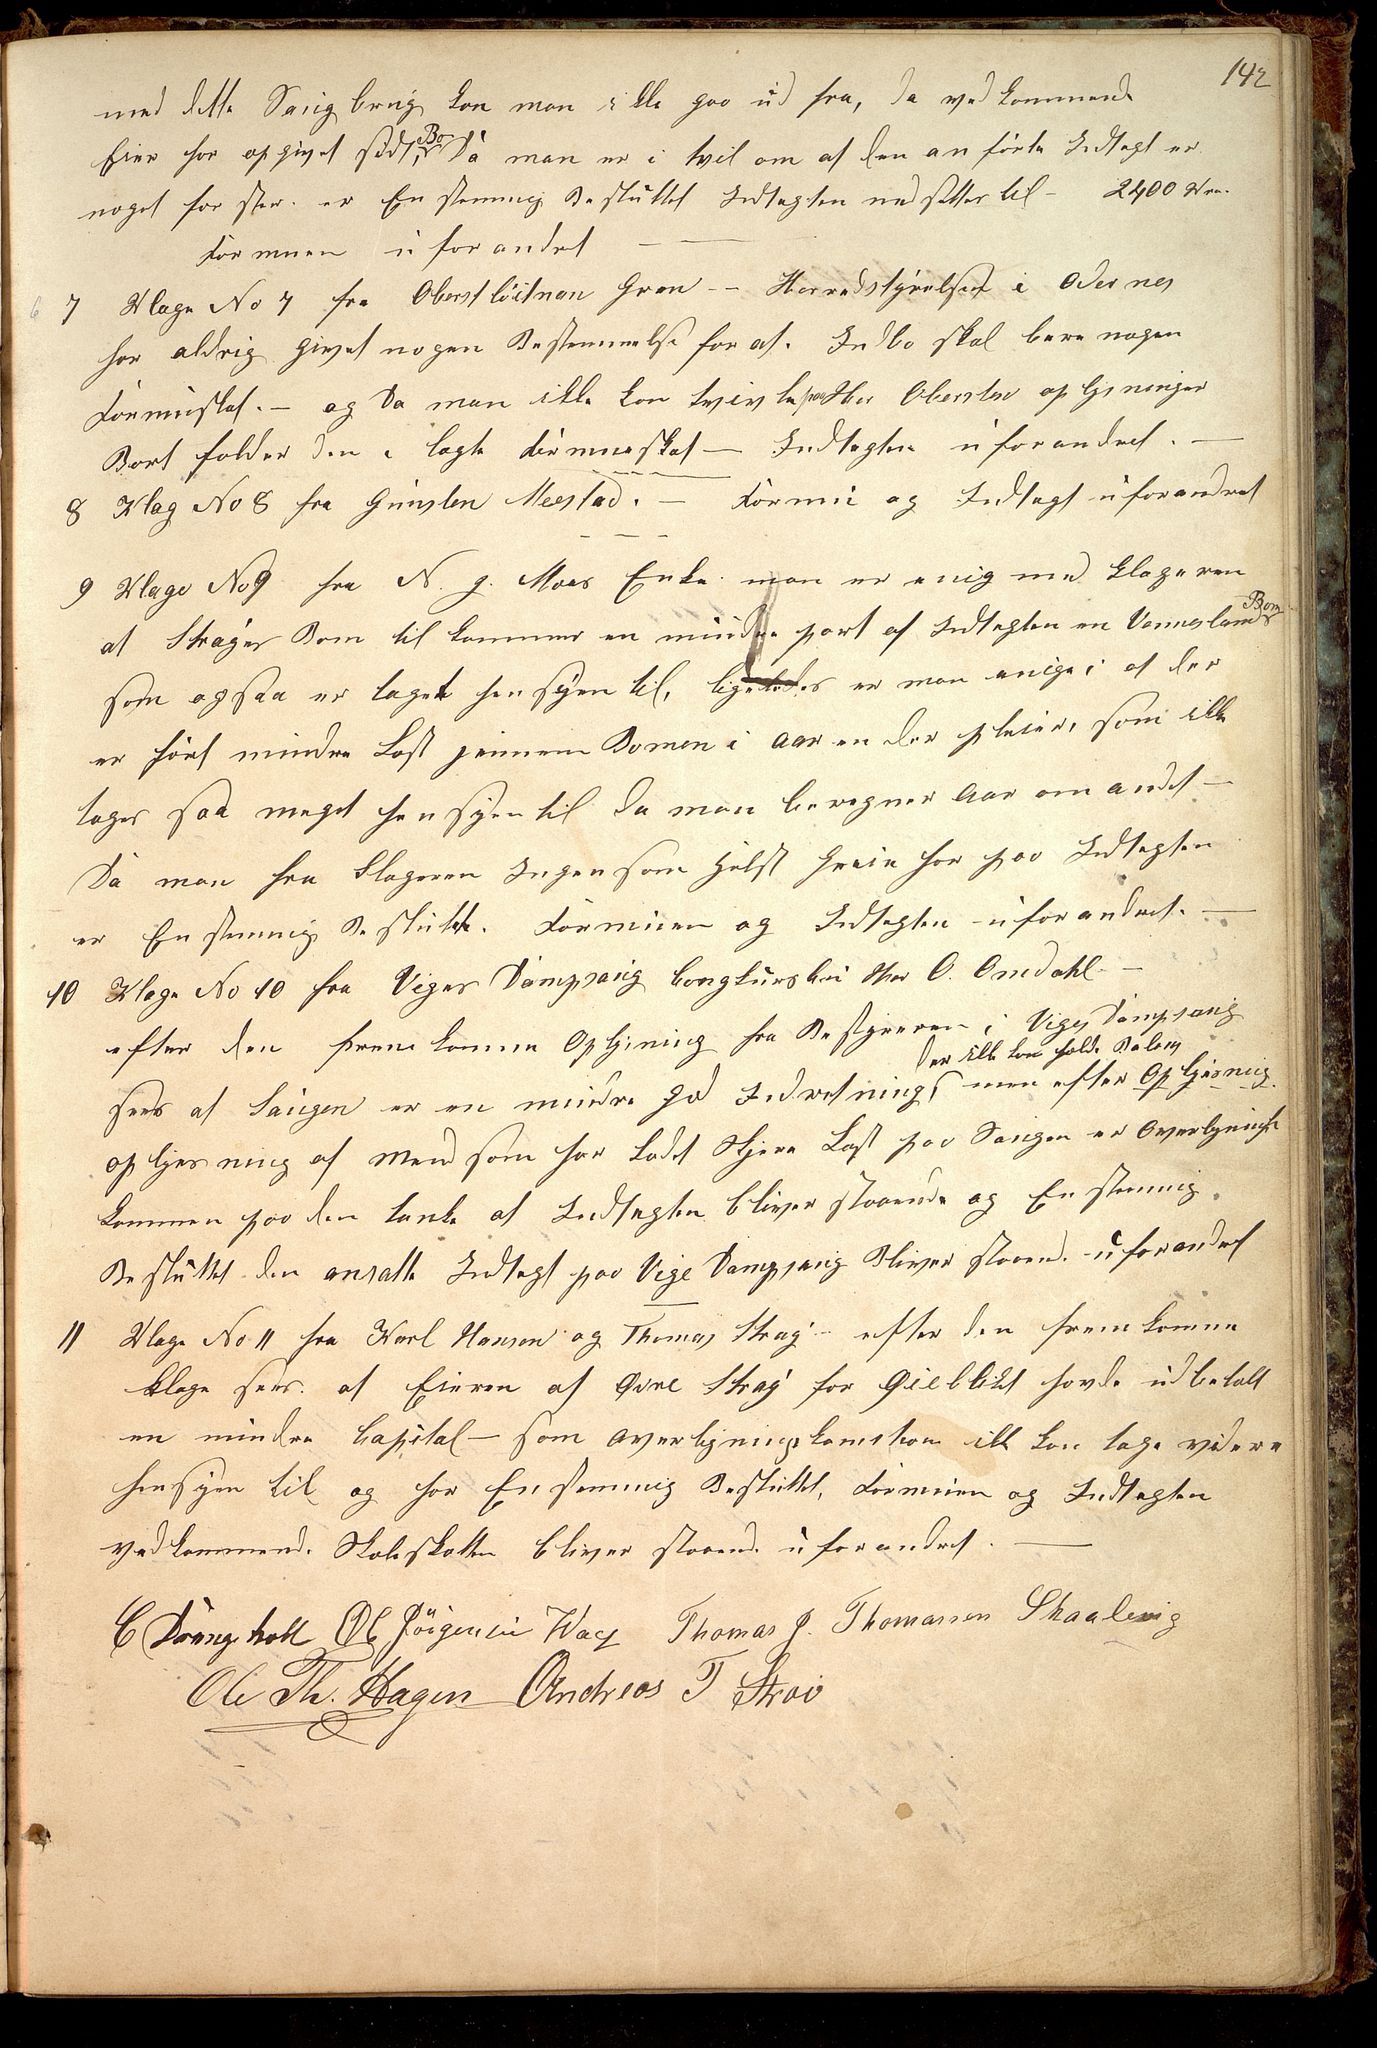 142
med dette Saugbrug kan man ikke gaa ud fra, da vedkommende
Eier har opgivet sidst Bo Da man er i tvil om at den anførte Indtægt er
noget for stor. er Enstemmig Besluttet Indtægten nedsættes til – 2400 Kro.
Formuen uforandret —
7 Klage No 7 fra Oberstløitnan Gran – – Herredstyrelsen i Odernes
har aldrig givet nogen Bestemmelse for at. Indbo skal bære nogen
Formuskat. – og Da man ikke kan tvivle paa Her Obersten oplysninger
Bort falder den i lagte Formueskat – Indtægten uforandret. –
8 Klag No 8 fra Gunsten Meestad. – Formu og Indtægt uforandret
9 Klage No 9 fra N. J. Moes Enke. man er enig med klageren
at Strayes Bom til kommer en mindre part af Indtægten en Venneslands Bom
som ogsaa er taget hensyen til, ligeledes er man enige i at der
er ført mindre Last jennem Bomen i Aar en der pleier, som ikke
tages saa meget hensyen til da man beregner Aar om andet –
Da man fra Klageren Ingensomhelst Greie har paa Indtægten
er Enstemmig Besluttet. Formuen og Indtægten uforandret. –
10 Klage No 10 fra Viges Dampsaug Congkursbu Her O. Omdahl –
efter den fremkomne Oplysning fra Bestyreren i Viges Dampsaug
der ikke kan holde Balang
sees at Saugen er en mindre god Indretning, men efter Oplysning
oplysning af Mend som har ladet Skjære Last paa Saugen er Overligningsk
kommen paa den tanke at Indtægten bliver staaende og Enstemmig
Besluttet den ansatte Indtægt paa Vige Dampsaug Bliver staaend. uforandret
11 Klage No 11 fra Karl Hansen og Thomas Stray – efter den fremkomne
klage sees. at Eieren af Øvre Stray for Øieblikket havde udbetalt
en mindre Capital – som Overligningskomition ikk kan tage videre
hensyen til og har Enstemmig Besluttet, Formuen og Indtægten
vedkommend. Skoleskatten bliver staaend. uforandret. —
Ole Jörgensen Thomas J. Thomassen Skaalevig
Ole Th. Hagen Andreas T Strai